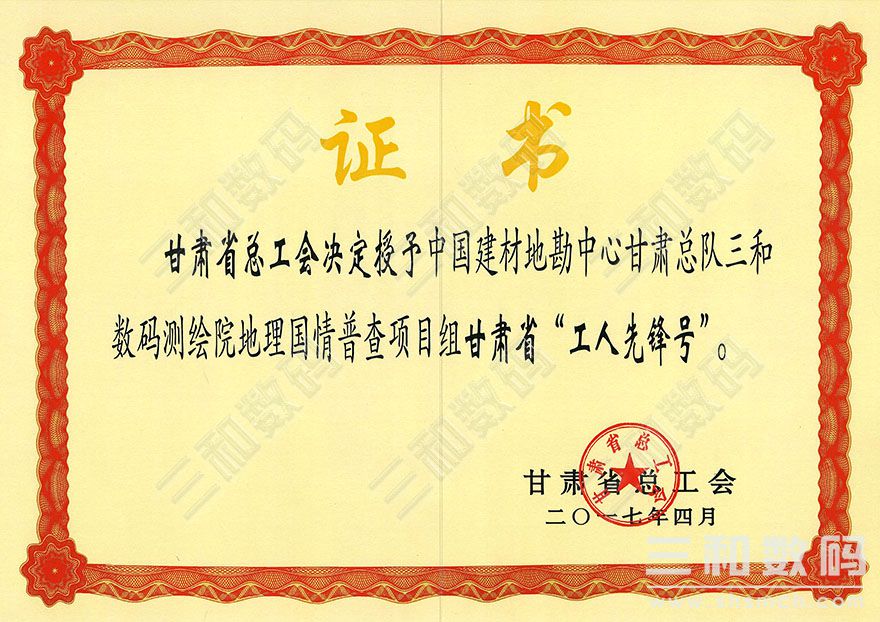 证书
甘肃省总工会决定授予中国建材地勘中心甘肃总队三和
数码测绘院地理国情普查项目组甘肃省“工人先锋号”。
甘肃省总工会
甘肃省总工会
二〇一七年四月
三和数码